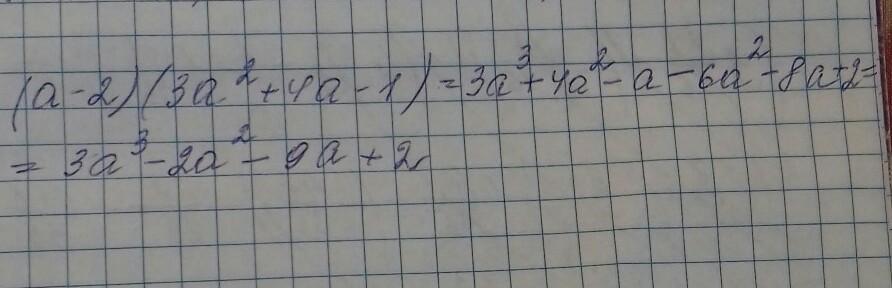 (a-2)(3a²+4a-1)=3a³+4a²-a-6a²-8a+2=
= 3a³-2a²-9a+2